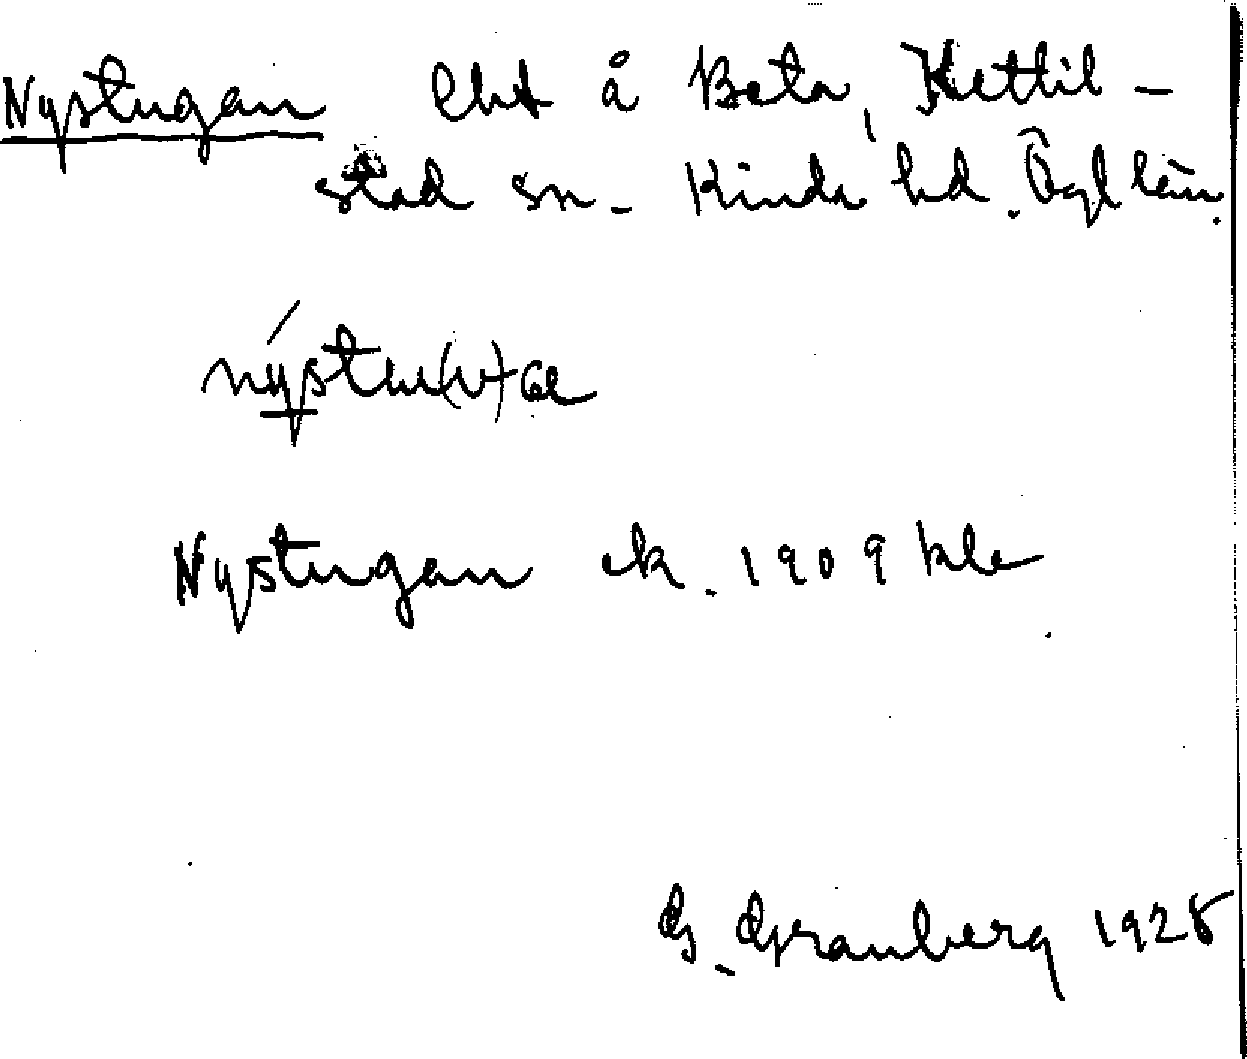 Nystugan lht å Beta, Kettil-
stad sn. Kinda hd. Ögl län.
Nystugan ek. 1909 kbl
G. Granberg 1925